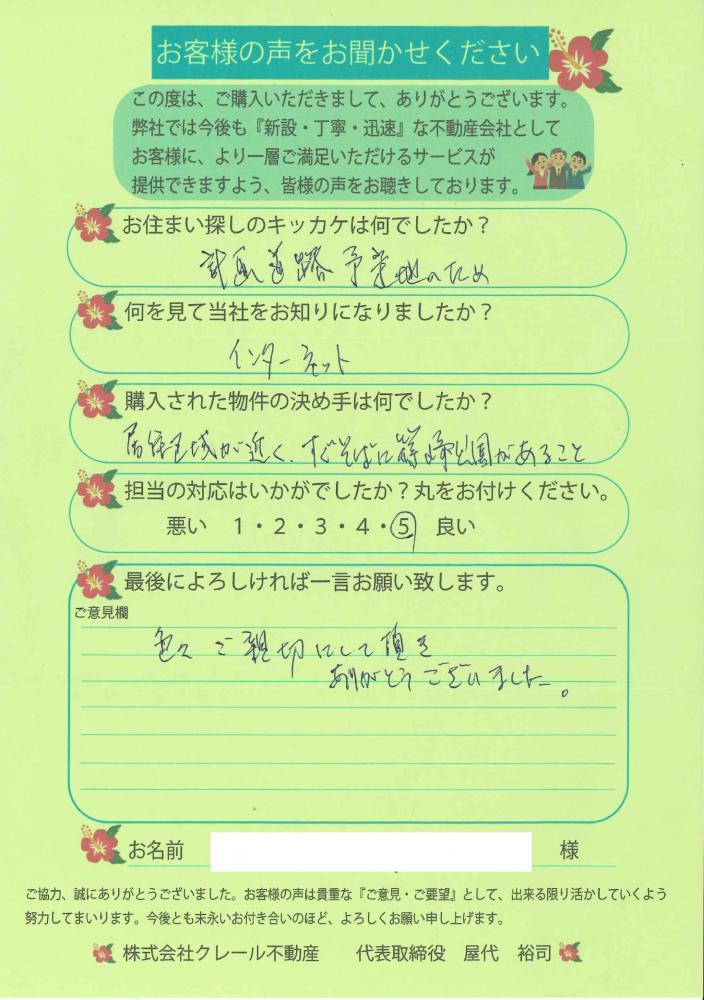 お客様の声をお聞かせください
この度は、ご購入いただきまして、ありがとうございます。
弊社では今後も『新設・丁寧・迅速』な不動産会社として
お客様に、より一層ご満足いただけるサービスが
提供できますよう、皆様の声をお聴きしております。
お住まい探しのキッカケは何でしたか？
計画道路予定地のため
何を見て当社をお知りになりましたか？
インターネット
購入された物件の決め手は何でしたか？
居住区域が近く、すぐそばに篠崎公園があること
担当の対応はいかがでしたか？丸をお付けください。
悪い　１・２・３・４・５　良い
最後によろしければ一言お願い致します。
ご意見欄
色々ご親切にして頂き
ありがとうございました。
お名前　様
ご協力、誠にありがとうございました。お客様の声は貴重な『ご意見・ご要望』として、出来る限り活かしていくよう
努力してまいります。今後とも末永いお付き合いのほど、よろしくお願い申し上げます。
株式会社クレール不動産　代表取締役　屋代　裕司